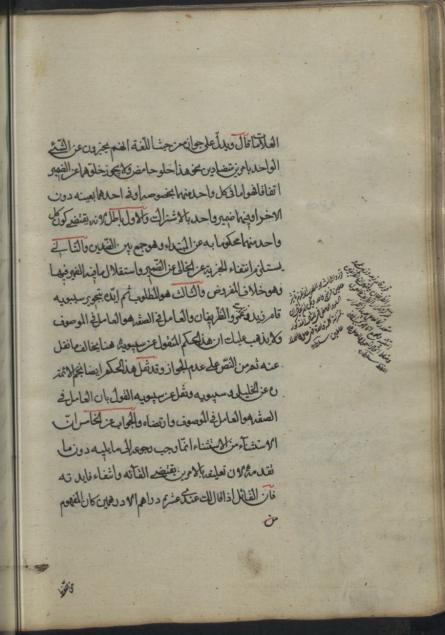 العلامة قال ويدل على جوازه من حيث اللغة انهم يخبرون عن الشئ
الواحد بامرين متضادين نحو هذا حلو حامض ولا يجوز خلوهما عن الضمير
اتفاقا فهو اما في كل واحد منهما بخصوصه او في احدهما بعينه دون
الاخر او فيهما ضمير واحد بالاشتراك والاول باطل لانه يقتضى كون كل
واحد منهما محكوما به عن المبتدا وهو جمع بين الضدين والثانى
يستلزم انتفاء الخبرية عن الخالى عن الضمير واستقلال ما فيه الضمير فيها
وهو خلاف المفروض والثالث هو المطلوب ثم ايد بتجويز سيبويه
قام زيد وعمرو الظريفان والعامل فى الصفة هو العامل فى الموصوف
ولا يذهب عليك ان هذا الحكم المنقول عن سيبويه هنا يخالف ما نقل
عنه من النص على عدم الجواز وقد نقل هذا الحكم ايضا نجم الائمة
ره عن الخليل وسيبويه ونقل عن سيبويه القول بان العامل فى
الصفة هو العامل فى الموصوف وارتضاه والجواب عن الخامس ان
الاستثناء من الاستثناء انما وجب رجوعه الى ما يليه دون ما
تقدمه لان تعليقه بالامرين يقتضى الغائه وانتفاء فايدته
فان القائل اذا قال لك عندى عشرة دراهم الا درهمين كان المفهوم
من